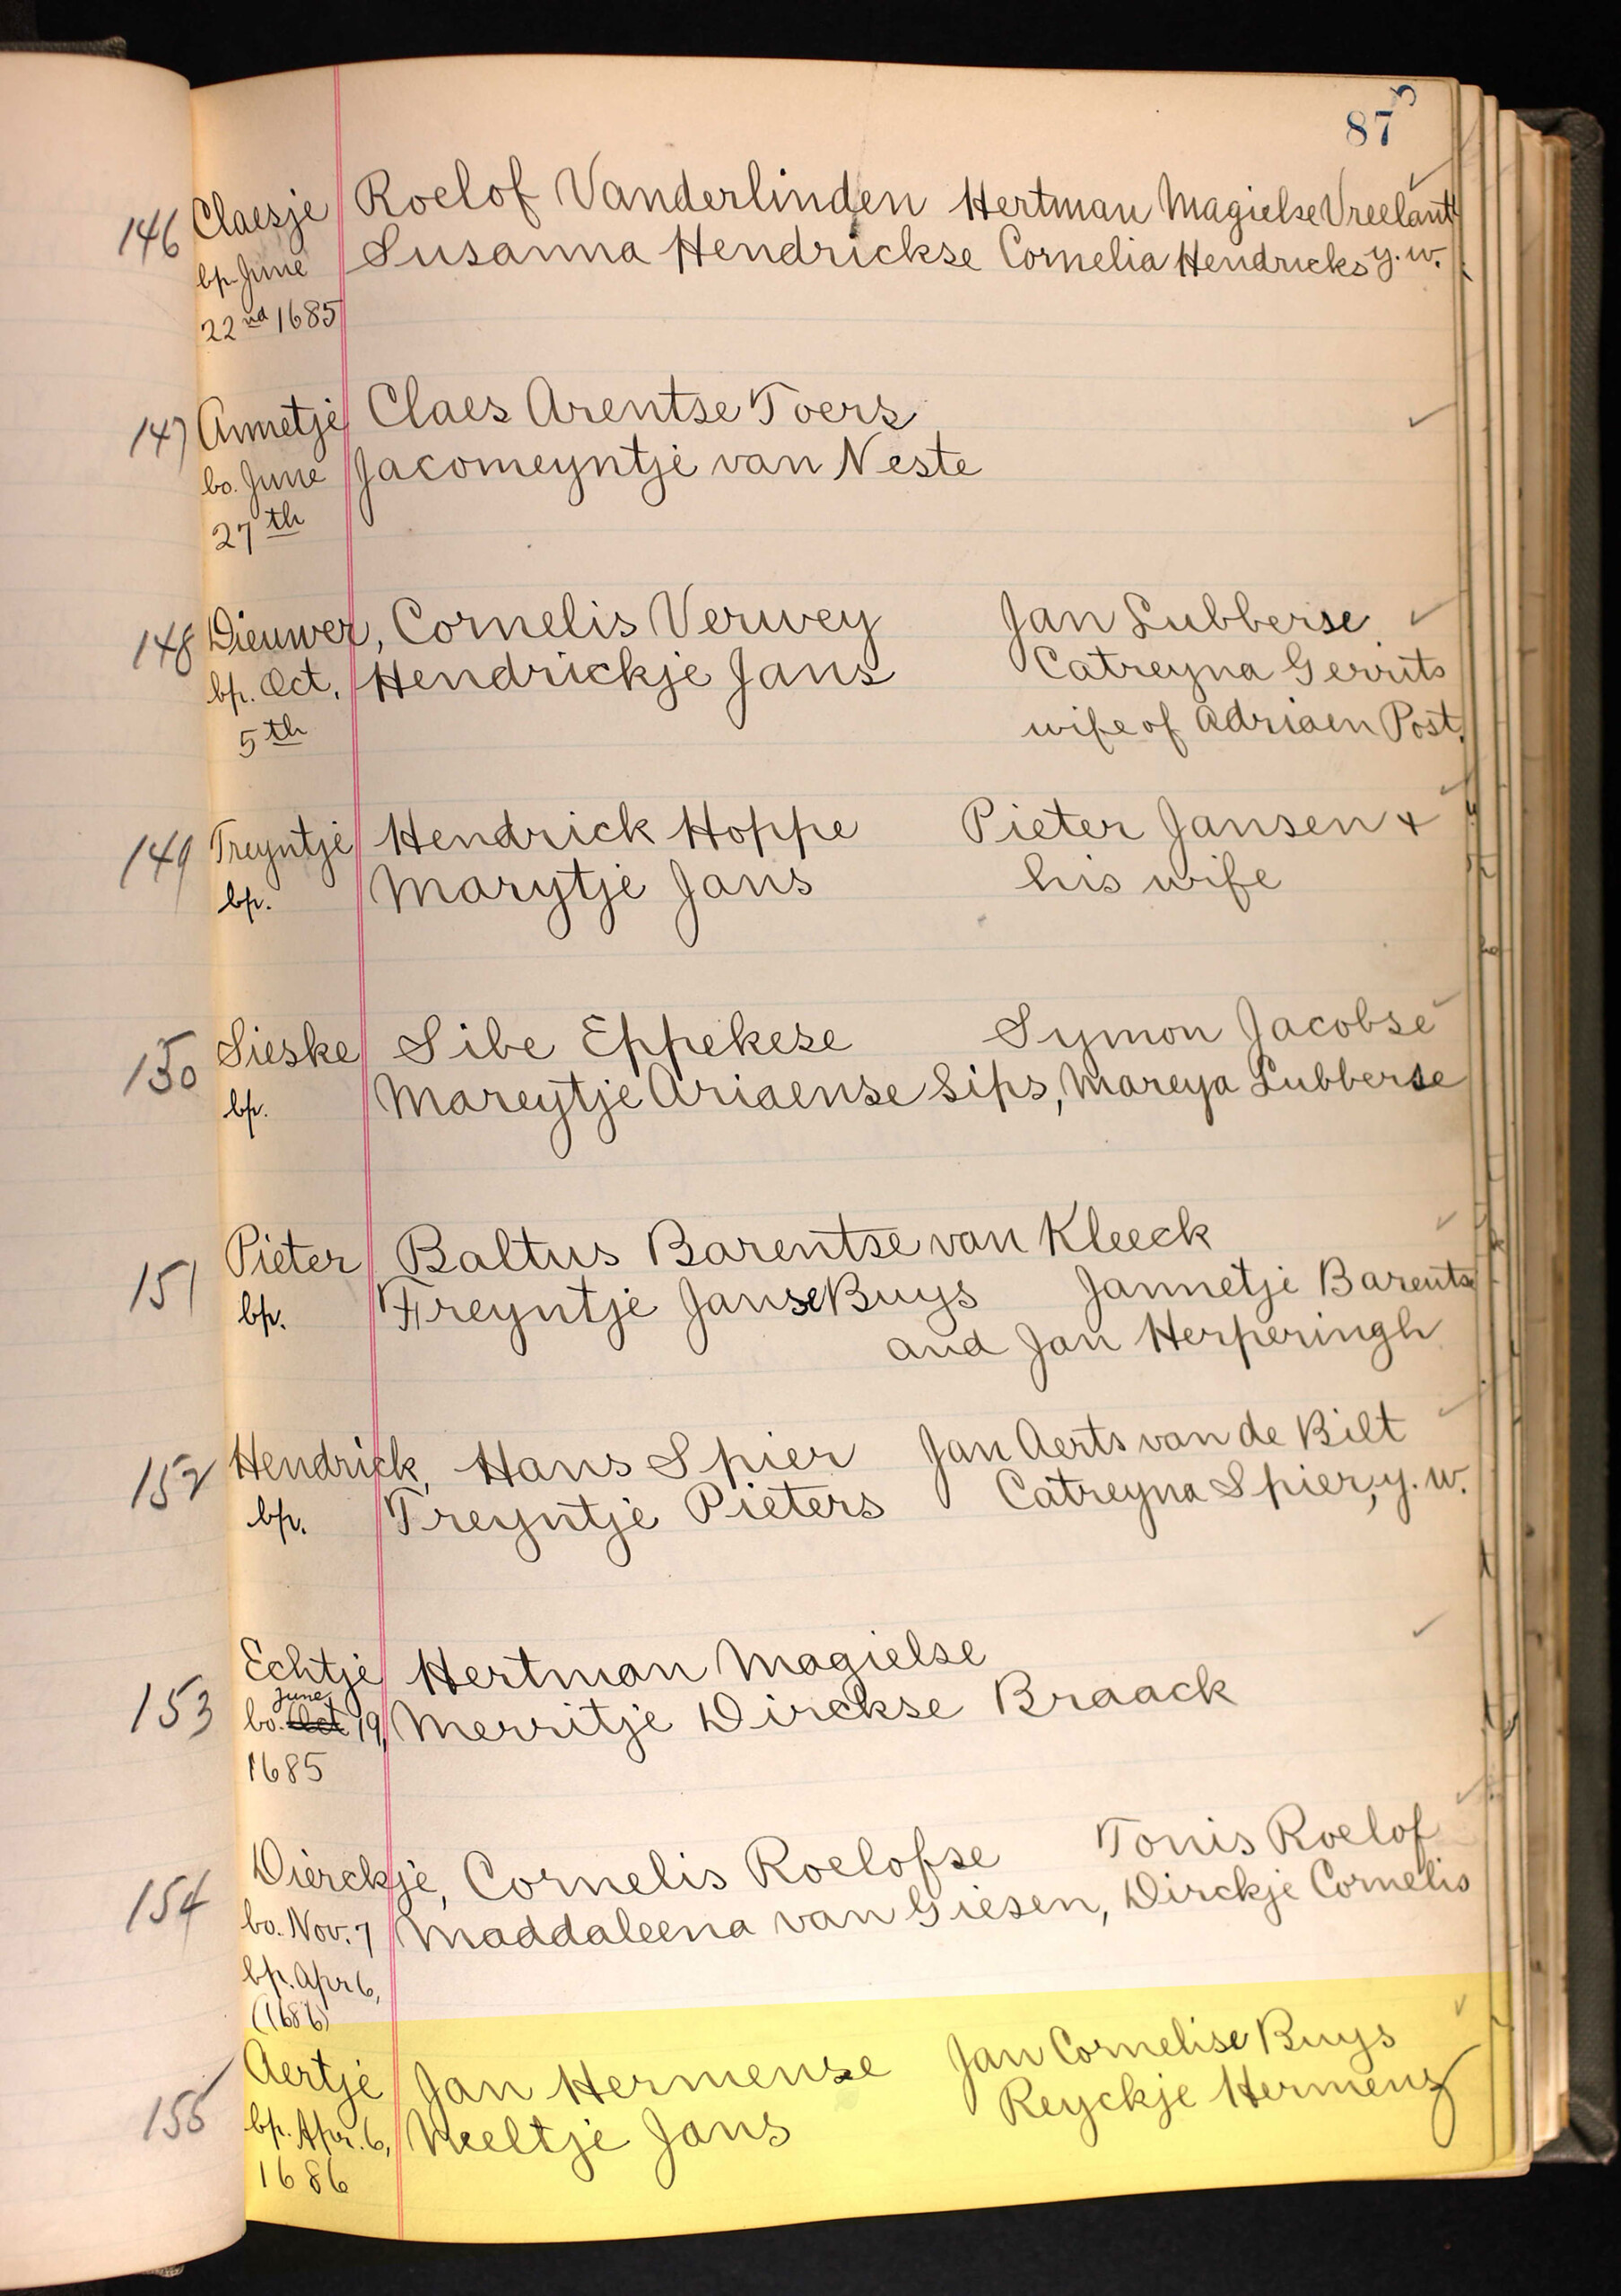 87
146 Claesje Roelof Vanderlinden Hertman Magielse Vreelant
bp. June Susanna Hendrickse Cornelia Hendricks y. w.
22nd 1685
147 Annetje Claes Arentse Toers
bo. June Jacomeyntje van Neste
27th
148 Dieuwer, Cornelis Verwey Jan Lubberse
bp. Oct. Hendrickje Jans Catreyna Gerrits
5th wife of Adriaen Post.
149 Treyntje Hendrick Hoppe Pieter Jansen +
bp. Marytje Jans his wife
150 Sieske Sibe Eppekese Symon Jacobse
bp. Mareytje Ariaense Sips, Mareya Lubberse
151 Pieter Baltus Barentse van Kleeck
bp. Treyntje Janse Buys Jannetje Barents
and Jan Herperingh
152 Hendrick, Hans Spier Jan Aerts van de Bilt
bp. Treyntje Pieters Catreyna Spier, y. w.
153 Echtje Hertman Magielse
June
bo. Oct 19, Merritje Dirckse Braack
1685
154 Dierckje, Cornelis Roelofse Tonis Roelof
bo. Nov. 7 Maddaleena van Giesen, Dirckje Cornelis
bp. Apr 6,
(1686)
155 Aertje Jan Hermense Jan Cornelise Buys
bp. Apr. 6, Neeltje Jans Reyckje Hermens
1686